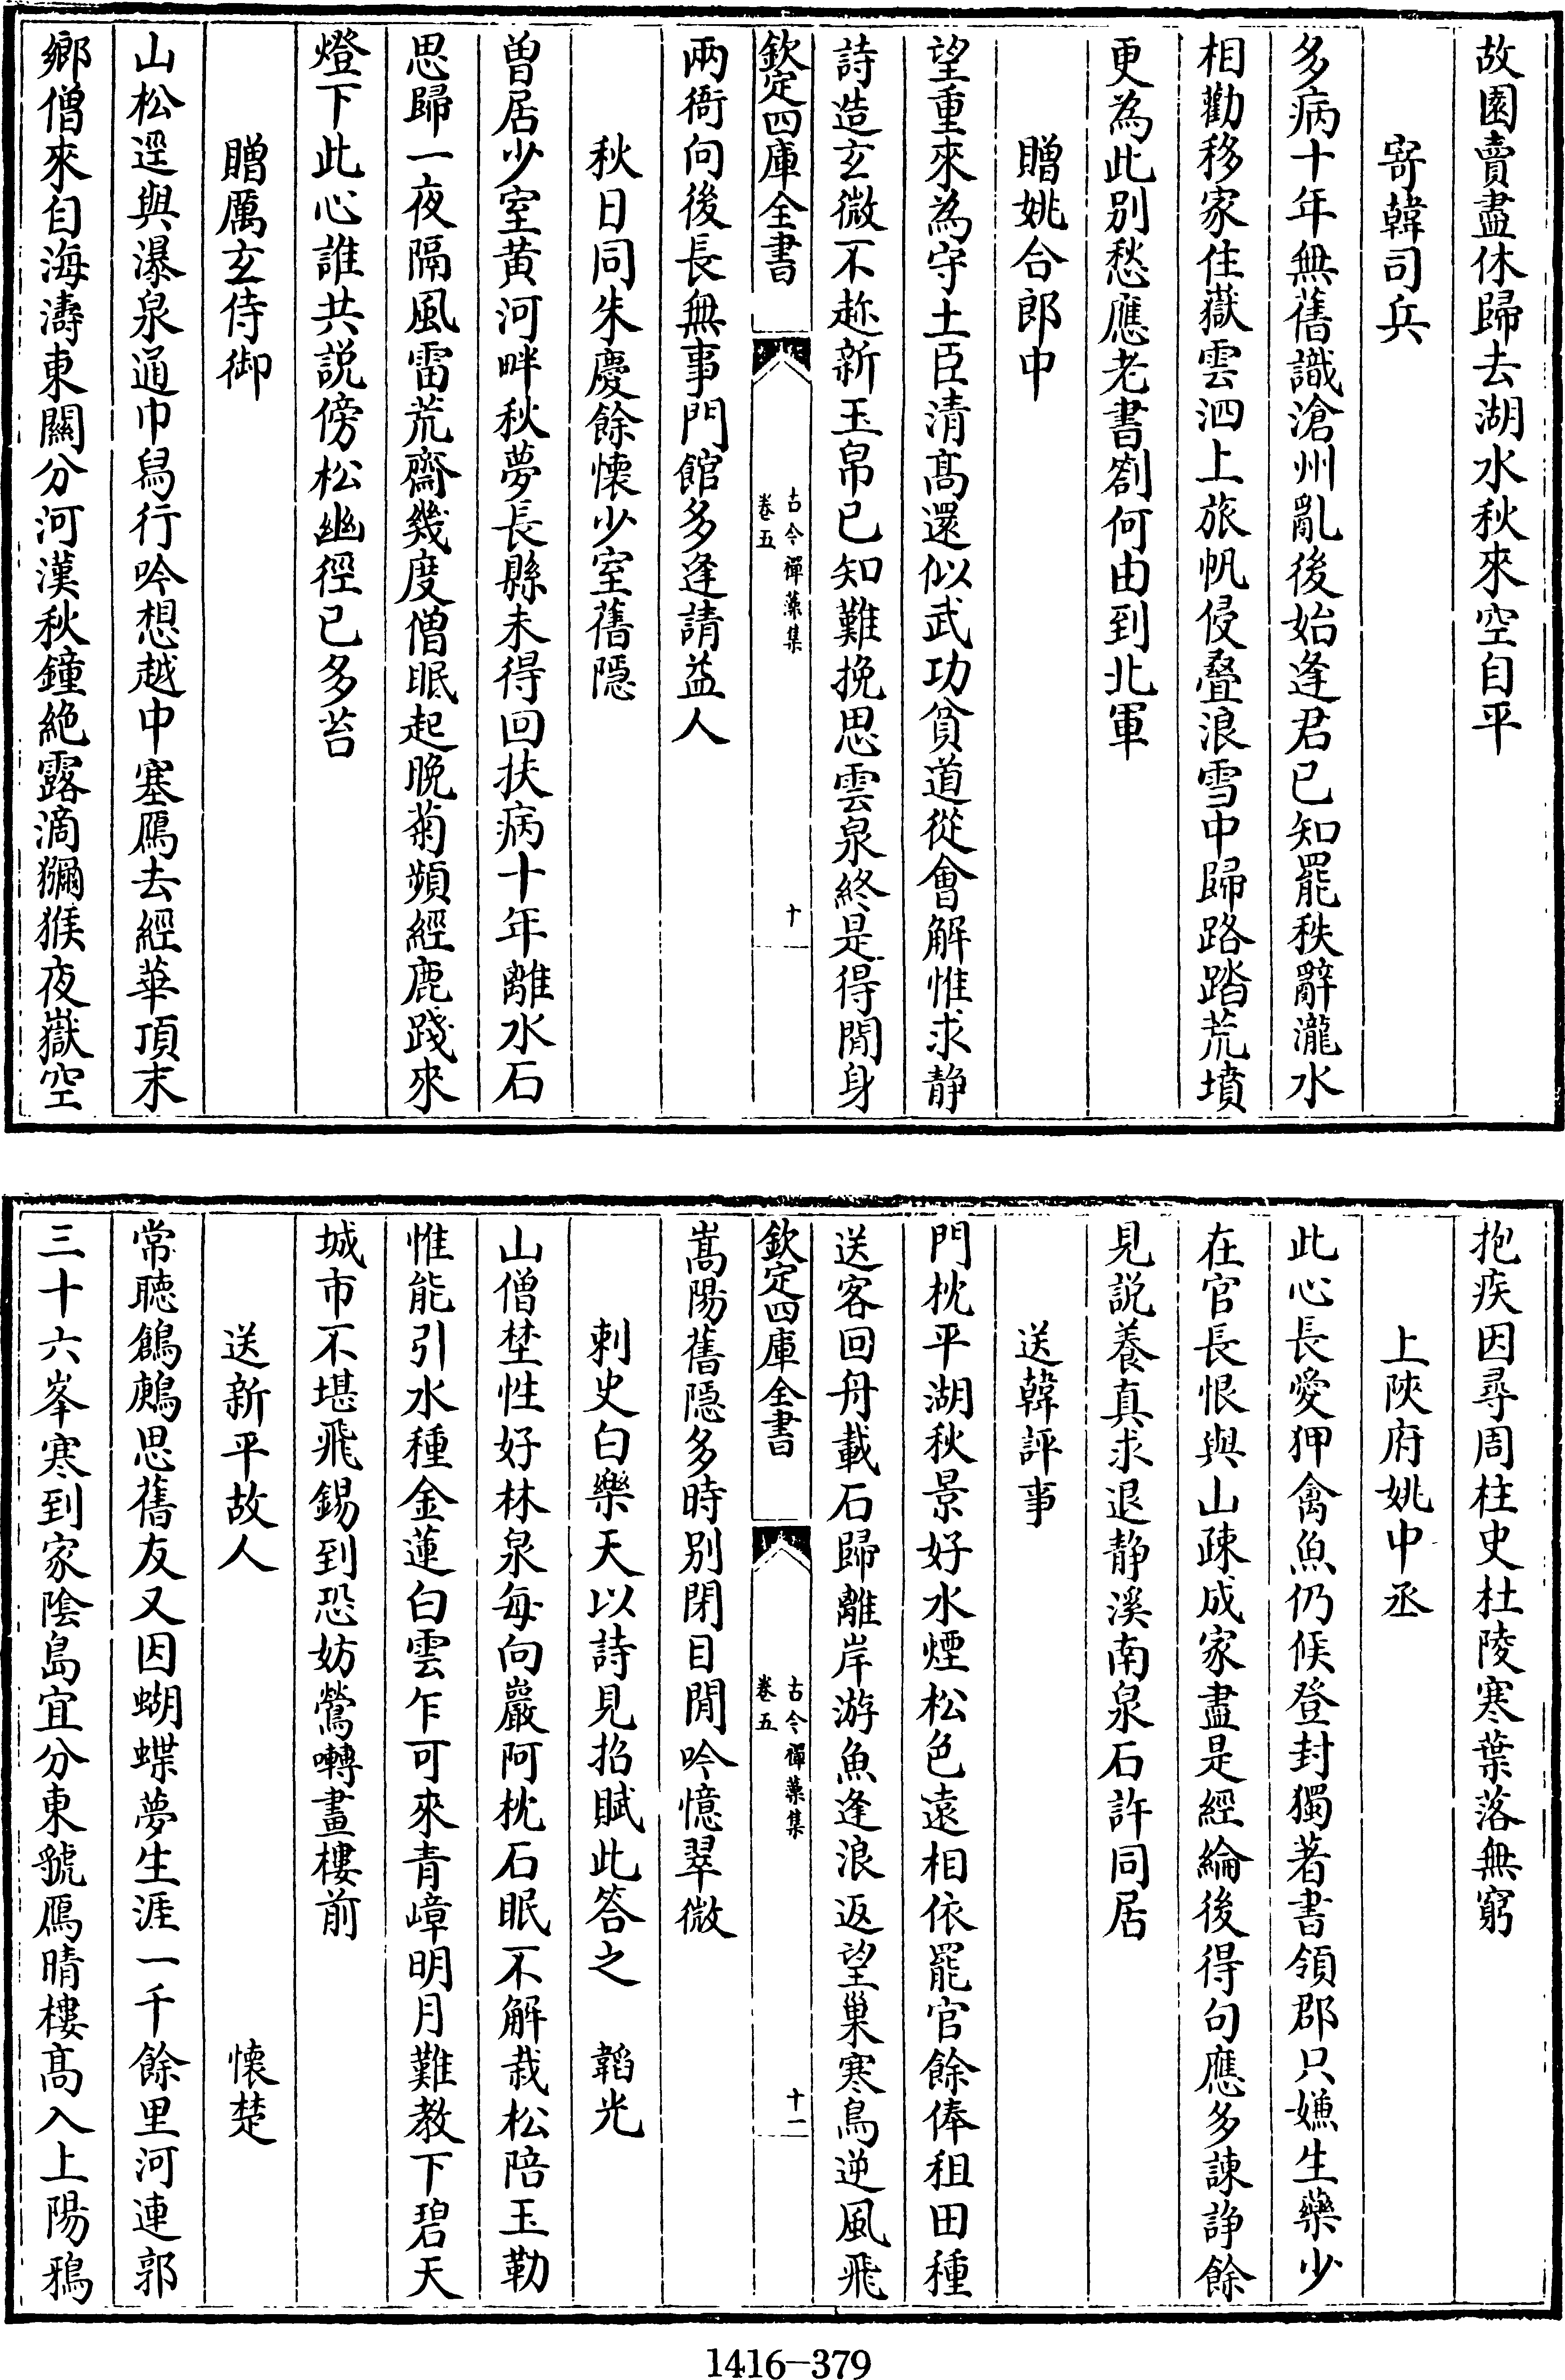 故園賣盡休歸去湖水秋來空自平
寄韓司兵
多病十年無舊識滄州亂後始逢君已知罷秩辭瀧水
相勸移家住嶽雲泗上旅帆侵疊浪雪中歸路踏荒墳
更為此别愁應老書劄何由到北軍
贈姚合郎中
望重來為守土臣清髙還似武功貧道從會解惟求静
詩造玄微不趂新玉帛已知難挽思雲泉終是得閒身
欽定四庫全書
古今禪藻集
卷五
十
兩衙向後長無事門館多逢請益人
秋日同朱慶餘懷少室舊隱
曽居少室黄河畔秋夢長縣未得回扶病十年離水石
思歸一夜隔風雷荒齋幾度僧眠起晚菊頻經鹿踐來
燈下此心誰共説傍松幽徑已多苔
贈厲玄侍御
山松逕與瀑泉通巾舄行吟想越中塞鴈去經華頂末
鄉僧來自海濤東關分河漢秋鐘絶露滴獼猴夜嶽空
抱疾因尋周柱史杜陵寒葉落無窮
上陜府姚中丞
此心長愛狎禽魚仍候登封獨著書領郡只嫌生藥少
在官長恨與山疎成家盡是經綸後得句應多諫諍餘
見説養真求退静溪南泉石許同居
送韓評事
門枕平湖秋景好水煙松色遠相依罷官餘俸租田種
送客回舟載石歸離岸游魚逢浪返望巢寒鳥逆風飛
欽定四庫全書
古今禪藻集
卷五
十一
嵩陽舊隱多時别閉目閒吟憶翠微
刺史白樂天以詩見招賦此答之 韜光
山僧埜性好林泉每向巖阿枕石眠不解栽松陪玉勒
惟能引水種金蓮白雲乍可來青嶂明月難教下碧天
城市不堪飛錫到恐妨鶯囀畫樓前
送新平故人 懷楚
常聽鷓鴣思舊友又因蝴蝶夢生涯一千餘里河連郭
三十六峯寒到家陰島宜分東虢鴈晴樓髙入上陽鴉
1416—379